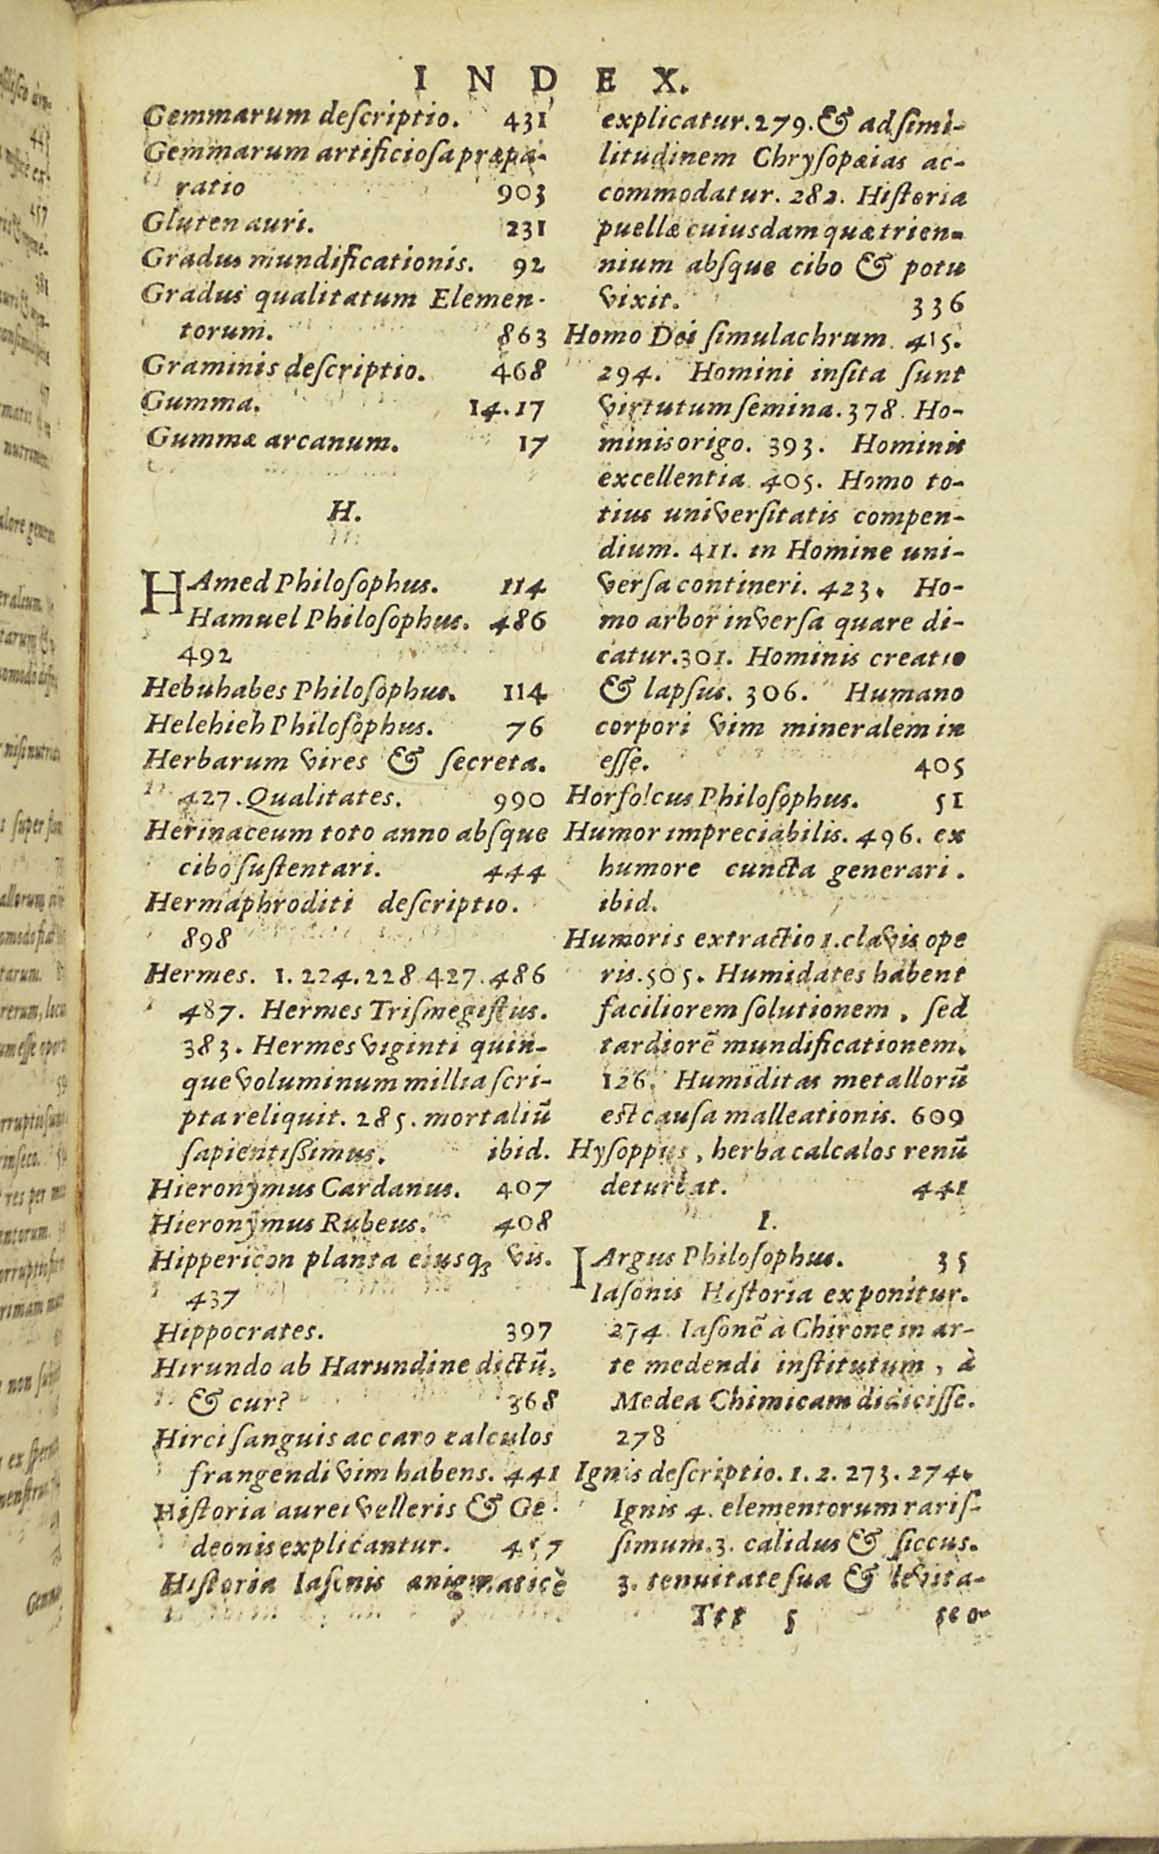 INDEX.
Gemmarum descriptio. 431
Gemmarum artificiosa præpa-
ratio 903
Gluten auri. 231
Gradus mundificationis. 92
Gradus qualitatum Elemen-
torum. 863
Graminis descriptio. 468
Gumma. 14.17
Gummæ arcanum. 17
H.
HAmed Philosophus. 114
Hamuel Philosophus. 486
492
Hebuhabes Philosophus. 114
Helehieh Philosophus. 76
Herbarum vires & secreta.
427. Qualitates. 990
Herinaceum toto anno absque
cibo sustentari. 444
Hermaphroditi descriptio.
898
Hermes. 1. 224. 228. 427. 486
487. Hermes Trismegistus.
383. Hermes viginti quin-
que voluminum millia scri-
pta reliquit. 285. mortaliũ
sapientissimus. ibid.
Hieronymus Cardanus. 407
Hieronymus Rubeus. 408
Hippericon planta eiusq; vis.
437
Hippocrates. 397
Hirundo ab Harundine dictũ,
& cur? 368
Hirci sanguis ac caro calculos
frangendi vim habens. 441
Historia aurei velleris & Ge-
deonis explicantur. 457
Historia Iasonis ænigmaticè
explicatur. 279. & ad simi-
litudinem Chrysopæias ac-
commodatur. 282. Historia
puellæ cuiusdam quæ trien-
nium absque cibo & potu
vixit. 336
Homo Dei simulachrum. 415.
294. Homini insita sunt
virtutum semina. 378. Ho-
minis origo. 393. Hominis
excellentia. 405. Homo to-
tius universitatis compen-
dium. 411. in Homine uni-
versa contineri. 423. Ho-
mo arbor inversa quare di-
catur. 301. Hominis creatio
& lapsus. 306. Humano
corpori vim mineralem in
esse. 405
Horfolcus Philosophus. 51
Humor impreciabilis. 496. ex
humore cuncta generari.
ibid.
Humoris extractio 1. clavis ope
ris. 505. Humidates habent
faciliorem solutionem, sed
tardiorẽ mundificationem.
126. Humiditas metallorũ
est causa malleationis. 609
Hysoppus, herba calcalos renũ
deturbat. 441
I.
IArgus Philosophus. 35
Iasonis Historia exponitur.
274. Iasonẽ à Chirone in ar-
te medendi institutum, à
Medea Chimicam didicisse.
278
Ignis descriptio. 1. 2. 273. 274.
Ignis 4. elementorum raris-
simum. 3. calidus & siccus.
3. tenuitate sua & levita-
Ttt 5